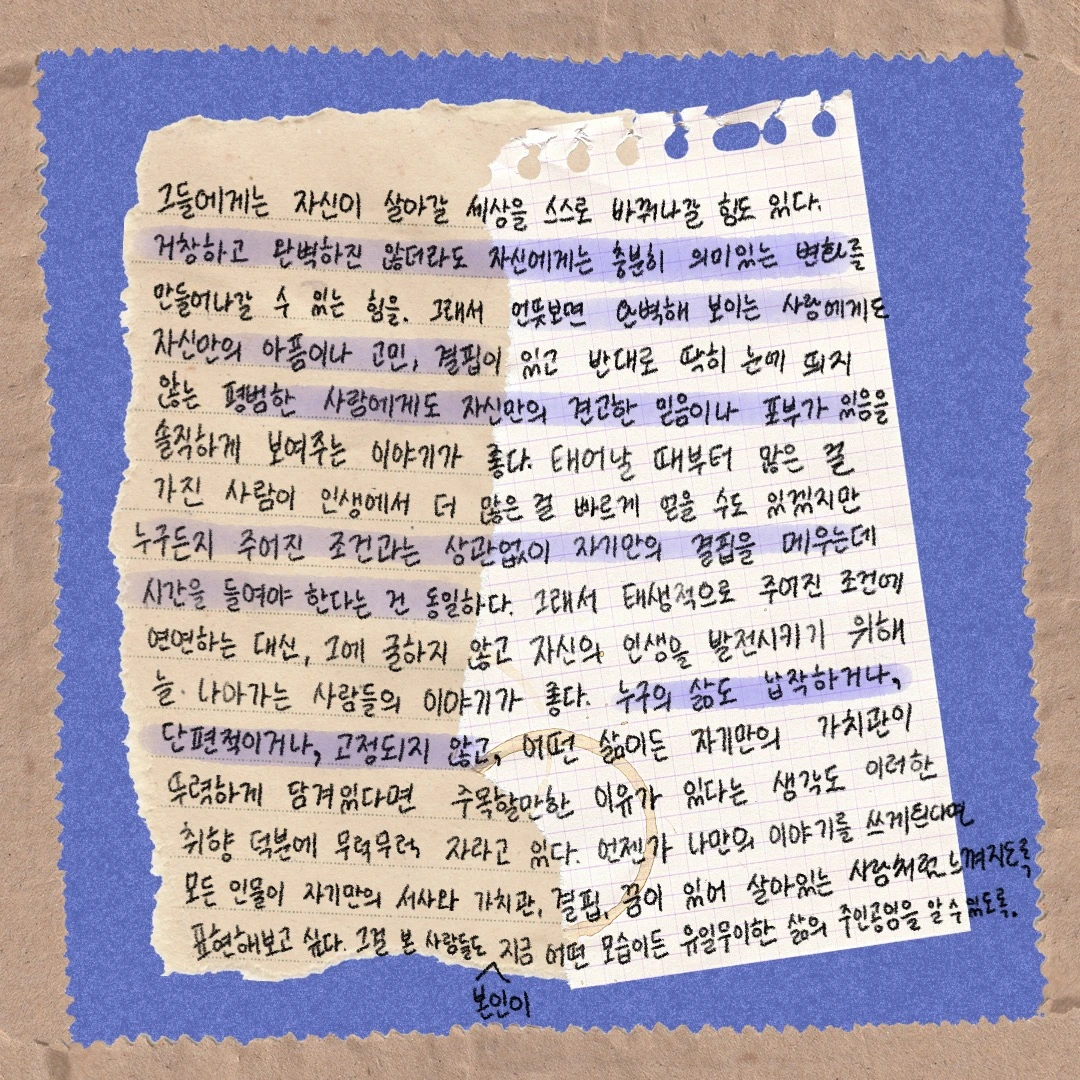 그들에게는 자신이 살아갈 세상을 스스로 바꿔나갈 힘도 있다.
거창하고 완벽하진 않더라도 자신에게는 충분히 의미있는 변화를
만들어나갈 수 있는 힘을. 그래서 언뜻보면 완벽해 보이는 사람에게도
자신만의 아픔이나 고민, 결핍이 있고 반대로 딱히 눈에 띄지
않는 평범한 사람에게도 자신만의 견고한 믿음이나 포부가 있음을
솔직하게 보여주는 이야기가 좋다. 태어날 때부터 많은 걸
가진 사람이 인생에서 더 많은 걸 빠르게 얻을 수도 있겠지만
누구든지 주어진 조건과는 상관없이 자기만의 결핍을 메우는데
시간을 들여야 한다는 건 동일하다. 그래서 태생적으로 주어진 조건에
연연하는 대신, 그에 굴하지 않고 자신의 인생을 발전시키기 위해
늘 나아가는 사람들의 이야기가 좋다. 누구의 삶도 납작하거나,
단편적이거나, 고정되지 않고, 어떤 삶이든 자기만의 가치관이
뚜렷하게 담겨있다면 주목할만한 이유가 있다는 생각도 이러한
취향 덕분에 무럭무럭 자라고 있다. 언젠가 나만의 이야기를 쓰게된다면
모든 인물이 자기만의 서사와 가치관, 결핍, 꿈이 있어 살아있는 사람처럼 느껴지도록
표현해보고 싶다. 그걸 본 사람들도 지금 어떤 모습이든 유일무이한 삶의 주인공임을 알 수 있도록.
본인이